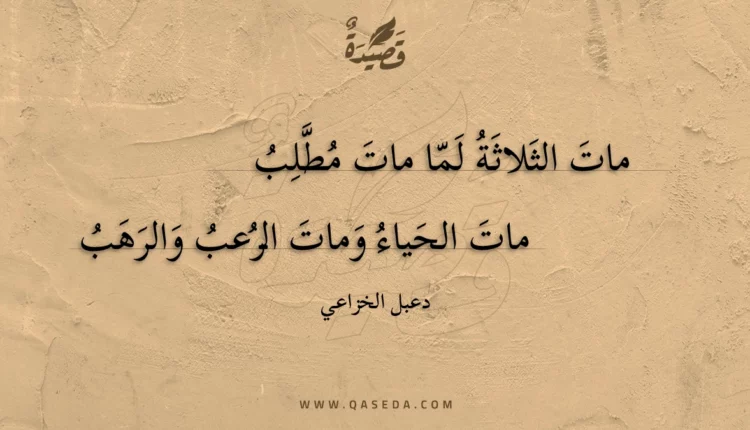 قَصِيدَةٌ
ماتَ الثَلاثَةُ لَمّا ماتَ مُطَّلِبُ
ماتَ الحَياءُ وَماتَ الرُعبُ وَالرَهَبُ
دعبل الخزاعي
WWW.QASEDA.COM